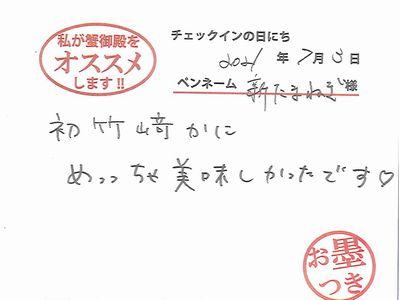 私が蟹御殿を
オススメ
します!!
チェックインの日にち
2021年7月3日
ペンネーム 新たまねぎ様
初竹崎かに
めっっちゃ美味しかったです♡
お墨
つき